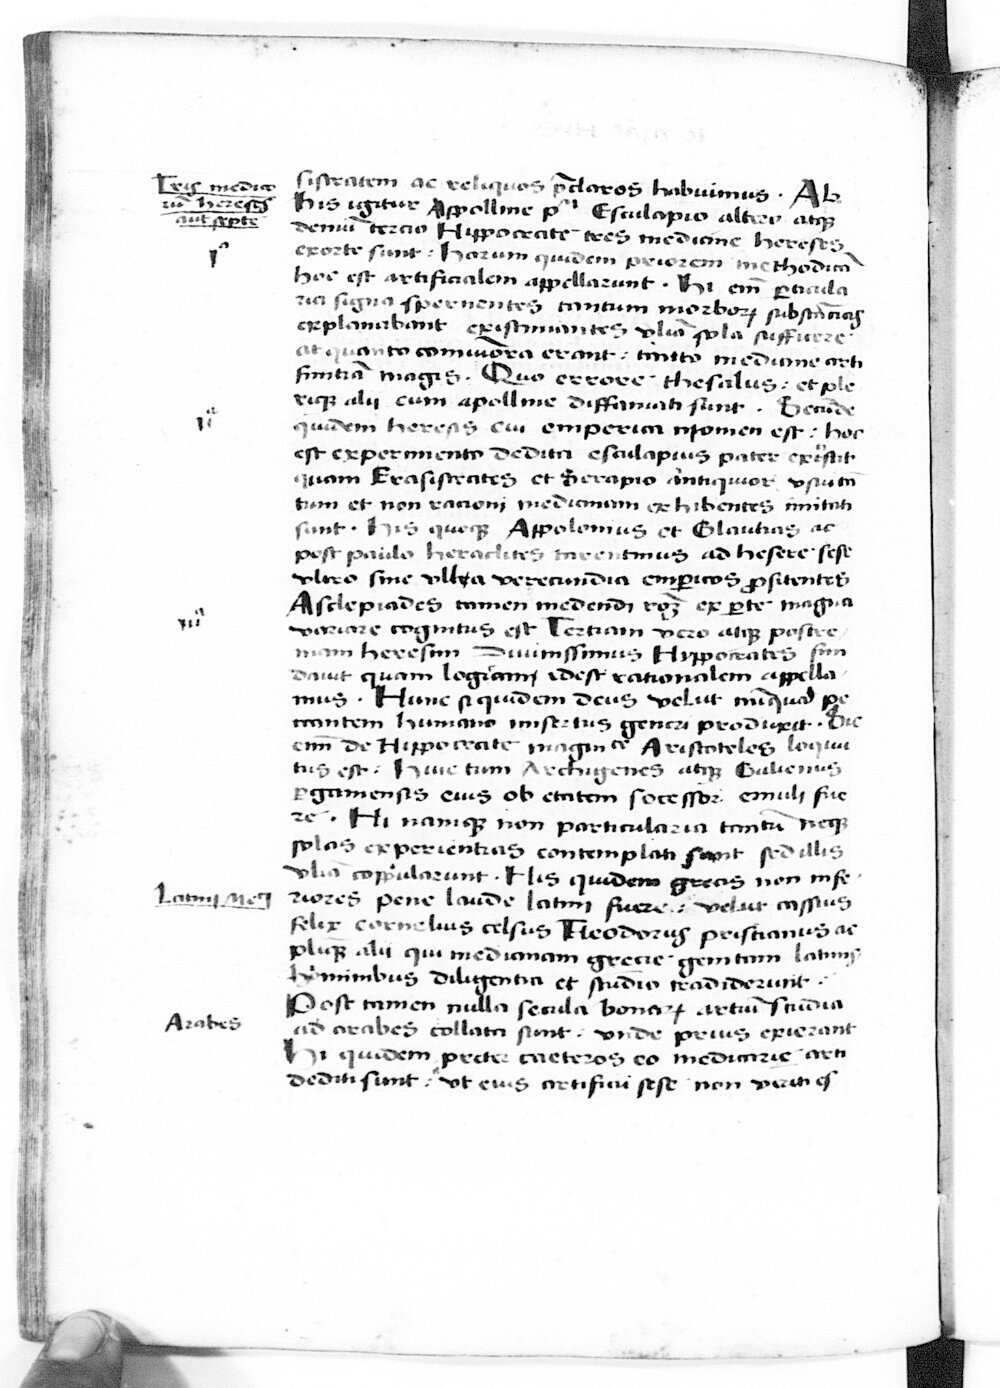 Tris medico
rum hereses
aut sperte
sistratem ac reliquos p̄claros habuimus · Ab
his igitur Appolline pº Esculapio altero atqꝫ
demū tercio Hippocrate tres medicine hereses
exorte sunt : harum quidem priorem methodicā
iª
hoc est artificialem appellarunt · Hi em̄ ꝑticula
ria signa spernentes tantum morboꝝ substācias
explanabant existimantes vl̄ia sola suffucere
at quanto com̄uora erant : tanto medicine arti
finitiā magis · Quo errore thesalus : et ple
riqꝫ alii cum apolline diffamati sunt · Secūde
iiª
quidem heresis cui emperica nomen est : hoc
est experimento dedita esculapius pater exᵗstit
quam Erasistrates et Serapio antiquior vsum
tum et non racioni medicinam exhibentes imitati
sunt · His quoqꝫ Appolonius et Glautias ac
post paulo heraclites tarentinus adhesere sese
vltro sine vlla verecundia emꝑicos ꝓfitentes
Asclepiades tamen medendi roꝫ ex ꝑte magna
iiiª
variare cognitus est Tertiam vero atqꝫ postre
mam heresim Diuinissimus Hyppocrates fun
dauit quam logicam idest rationalem appella
mus · Hunc si quidem deus velut nūquā pe
ccantem humano misertus generi produxit · Sic
em̄ de Hippocrate magnᵒ Aristoteles loqui
tus est : Huic tum Archigenes atqꝫ Galienus
ꝑgamensis eius ob etatem socessor emuli fue
re · Hi namqꝫ non particularia tantū neqꝫ
solas experientias contemplati sunt sed illis
vl̄ia coppularunt · His quidem grecis non infe
Latini Medi
riores pene laude latini fuere : velut cassius
felix cornelius celsus Theodorus priscianus ac
pluqꝫ alii qui medicinam grecie genitam latinis
hominibus diligentia et studio tradiderunt ·
Post tamen nulla secula bonaꝝ artiū studia
Arabes
ad arabes collata sunt : vnde prius exierant
Hi quidem preter caeteros eo medicarie arti
dediti sunt : vt eius artificii sese non veriti es